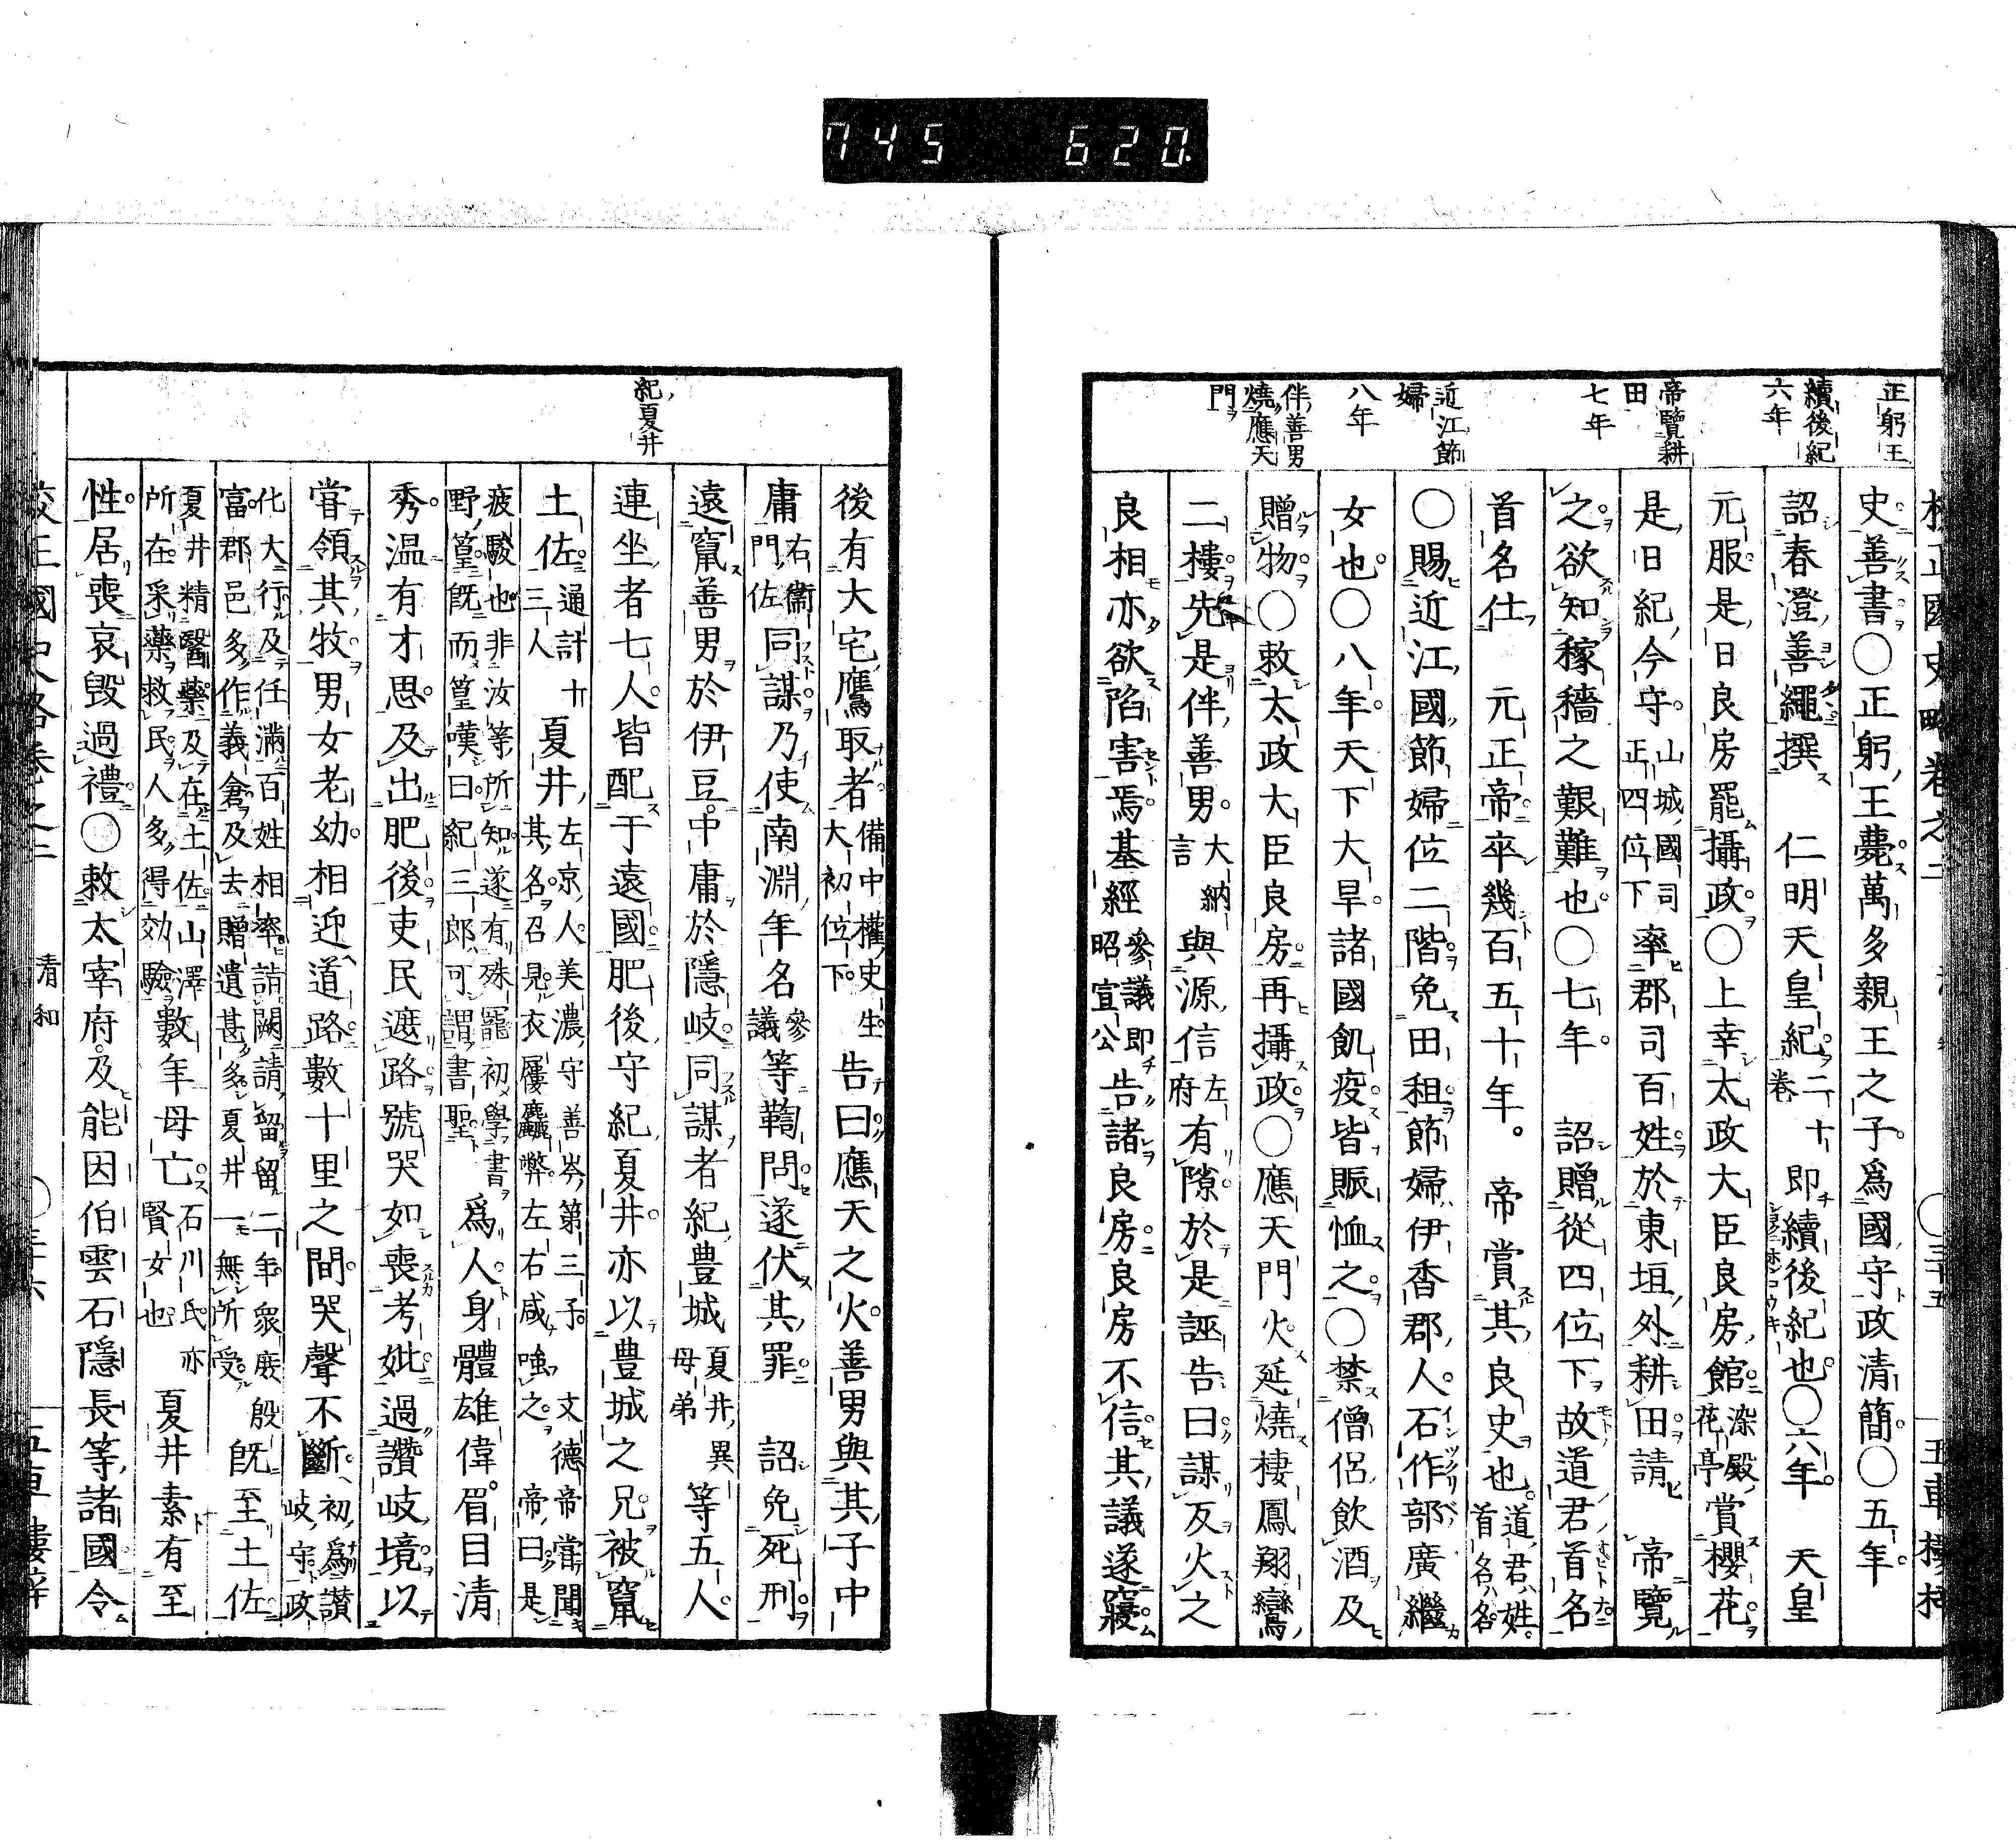 745 620
正躬王
續後紀
六年
帝覽耕
田
七年
近江節
婦
八年
伴善男
燒應天
門
史善書○正躬王薨萬多親王之子爲國守政清簡○五年
詔春澄善繩撰 仁明天皇紀二十卷即續後紀也○六年 天皇
元服是日良房罷攝政○上幸太政大臣良房館染殿花亭賞櫻花
是日紀今守山城國司正四位下率郡司百姓於東垣外耕田請 帝覽
之欲知稼穡之艱難也○七年 詔贈從四位下故道君首名
首名仕 元正帝卒幾百五十年。 帝賞其良史也道君ハ姓首名ハ名
○賜近江國節婦位二階免田租節婦伊香郡人石作部廣繼
女也○八年天下大旱諸國飢疫皆賑恤之○禁僧侶飲酒及
贈物○敕太政大臣良房再攝政○應天門火延燒棲鳳翔鸞
二樓先是伴善男大納言與源信左府有隙於是誣告曰謀反火之
良相亦欲陷害焉基經參議即昭宣公告諸良房良房不信其議遂寢
紀夏井
後有大宅鷹取者備中權史生大初位下告曰應天之火善男與其子中
庸右衞門佐同謀乃使南淵年名參議等鞫問遂伏其罪 詔免死刑
遠竄善男於伊豆中庸於隱岐同謀者紀豊城夏井異母弟等五人
連坐者七人皆配于遠國肥後守紀夏井亦以豊城之兄被竄
土佐通計十三人夏井左京人美濃守善岑第三子 文德帝嘗聞其名召見衣屨麤弊左右咸嗤之 帝曰是
疲駿也非汝等所知遂有殊寵初學書野篁既而篁嘆曰紀三郎可謂書聖爲人身體雄偉眉目清
秀温有才思及出肥後吏民遮路號哭如喪考妣過讚岐境以
嘗領其牧男女老幼相迎道路數十里之間哭聲不斷初爲讃岐守政
化大行及任滿百姓相率詣闕請留留二年衆庶殷富郡邑多作義倉及去贈遺甚多夏井一無所受既至土佐
夏井精醫藥及在土佐山澤所在采藥救民人多得効驗數年母亡石川氏亦賢女也夏井素有至
性居喪哀毀過禮○敕太宰府及能因伯雲石隱長等諸國令
清和